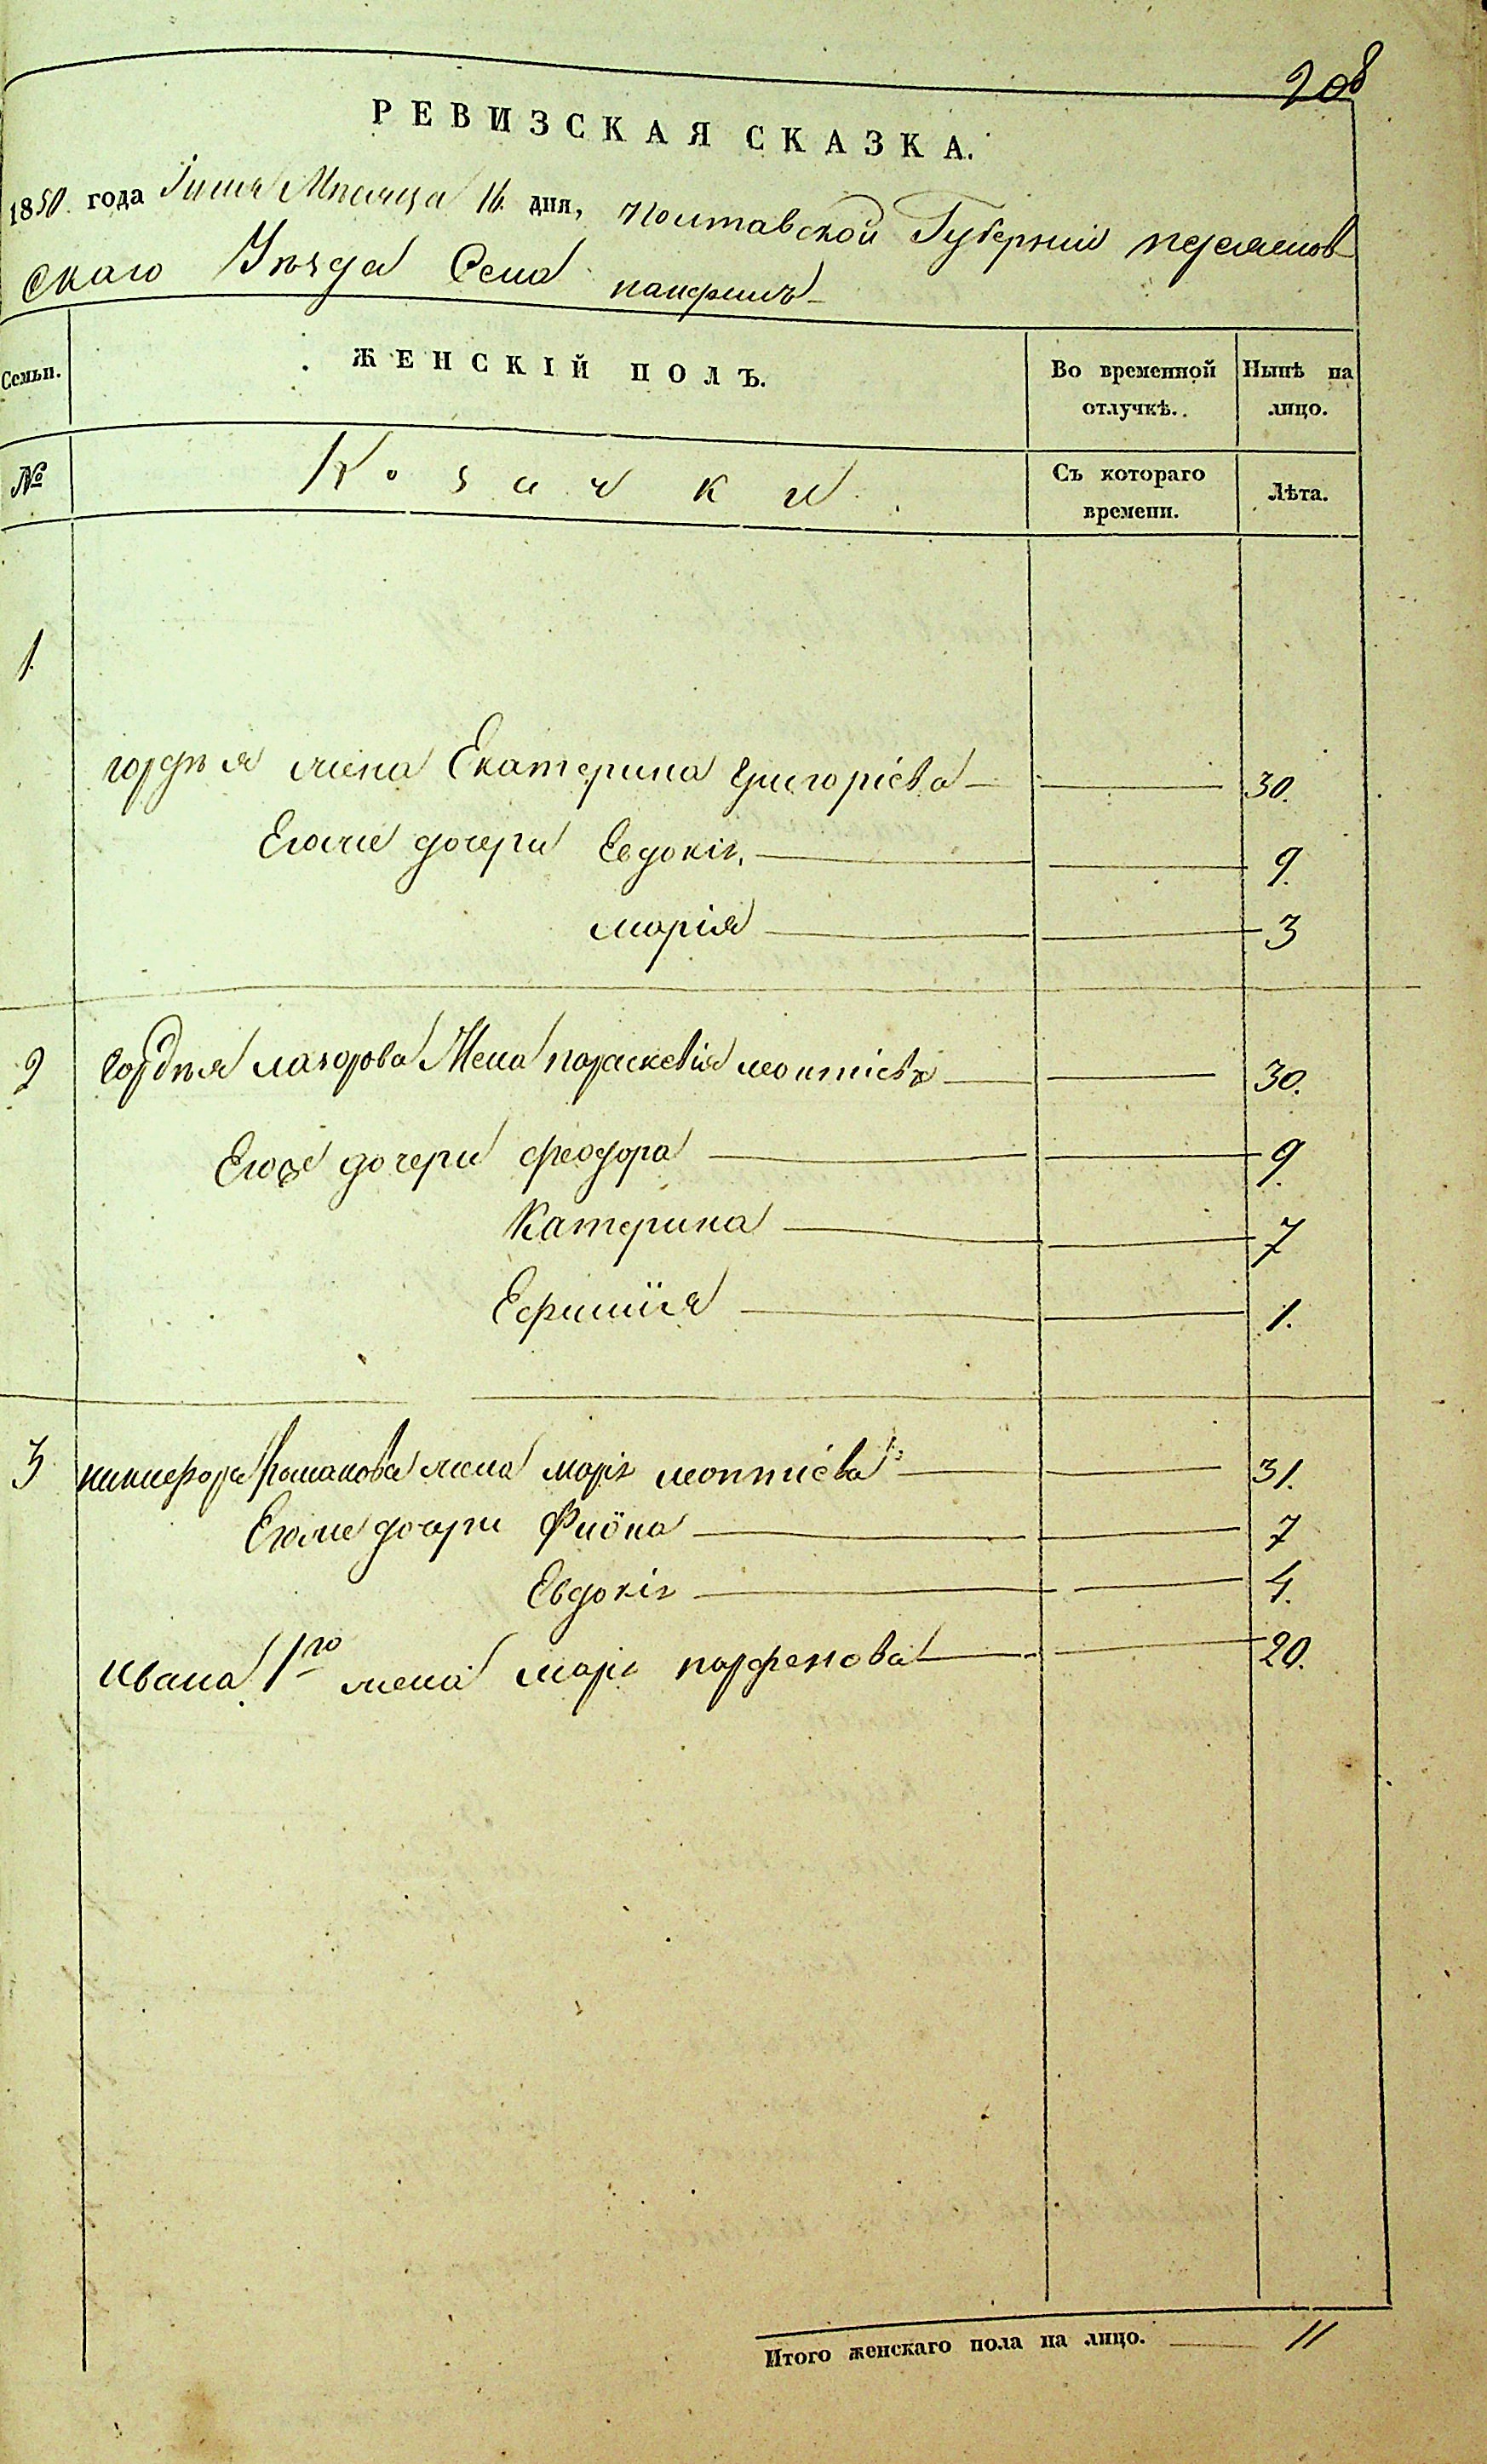 208
РЕВИЗСКАЯ СКАЗКА.
1850 года Іюля Мѣсяца 16 дня, Полтавской Губерніи переяслов
скаго Уѣзда Села
Семьи. ЖЕНСКІЙ ПОЛЪ. Во временной отлучкѣ. Нынѣ на лицо.
№ Козачки. Съ котораго времени. Лѣта.
1.
гордѣя жена Екатерина григоріева 30.
Егоже дочери Евдокія 9.
марія 3
2 Гордѣя лазорова Жена параскевія леонтіева 30.
Егоже дочери феодора 9.
Катерина 7
Ефимія 1.
3 никифора романова жена марія леонтіева 31.
Егоже дочери Фіона 7
Евдокія 4.
Ивана 1го жена марія парфенова 20.
Итого женскаго пола на лицо. 11